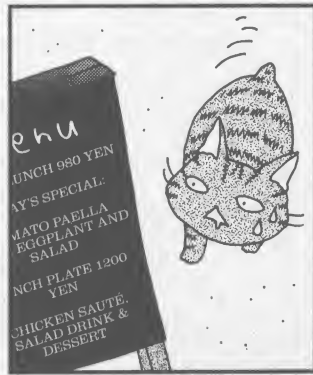 enu
UNCH 980 YEN
AY'S SPECIAL:
MATO PAELLA
EGGPLANT AND
SALAD
NCH PLATE 1200
YEN
CHICKEN SAUTÉ,
SALAD DRINK &
DESSERT